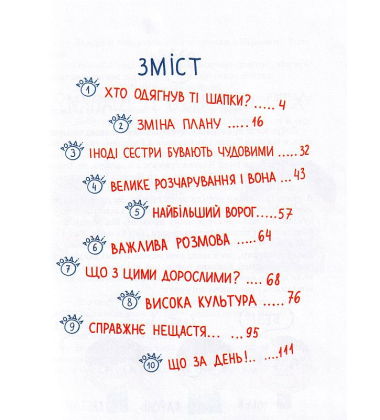 ЗМІСТ
РОЗДІЛ 1 ХТО ОДЯГНУВ ТІ ШАПКИ? ..... 4
РОЗДІЛ 2 ЗМІНА ПЛАНУ ..... 16
РОЗДІЛ 3 ІНОДІ СЕСТРИ БУВАЮТЬ ЧУДОВИМИ ..... 32
РОЗДІЛ 4 ВЕЛИКЕ РОЗЧАРУВАННЯ І ВОНА ... 43
РОЗДІЛ 5 НАЙБІЛЬШИЙ ВОРОГ..... 57
РОЗДІЛ 6 ВАЖЛИВА РОЗМОВА ..... 64
РОЗДІЛ 7 ЩО З ЦИМИ ДОРОСЛИМИ? .... 68
РОЗДІЛ 8 ВИСОКА КУЛЬТУРА ..... 76
РОЗДІЛ 9 СПРАВЖНЄ НЕЩАСТЯ... ... 95
РОЗДІЛ 10 ЩО ЗА ДЕНЬ!.. .... 111